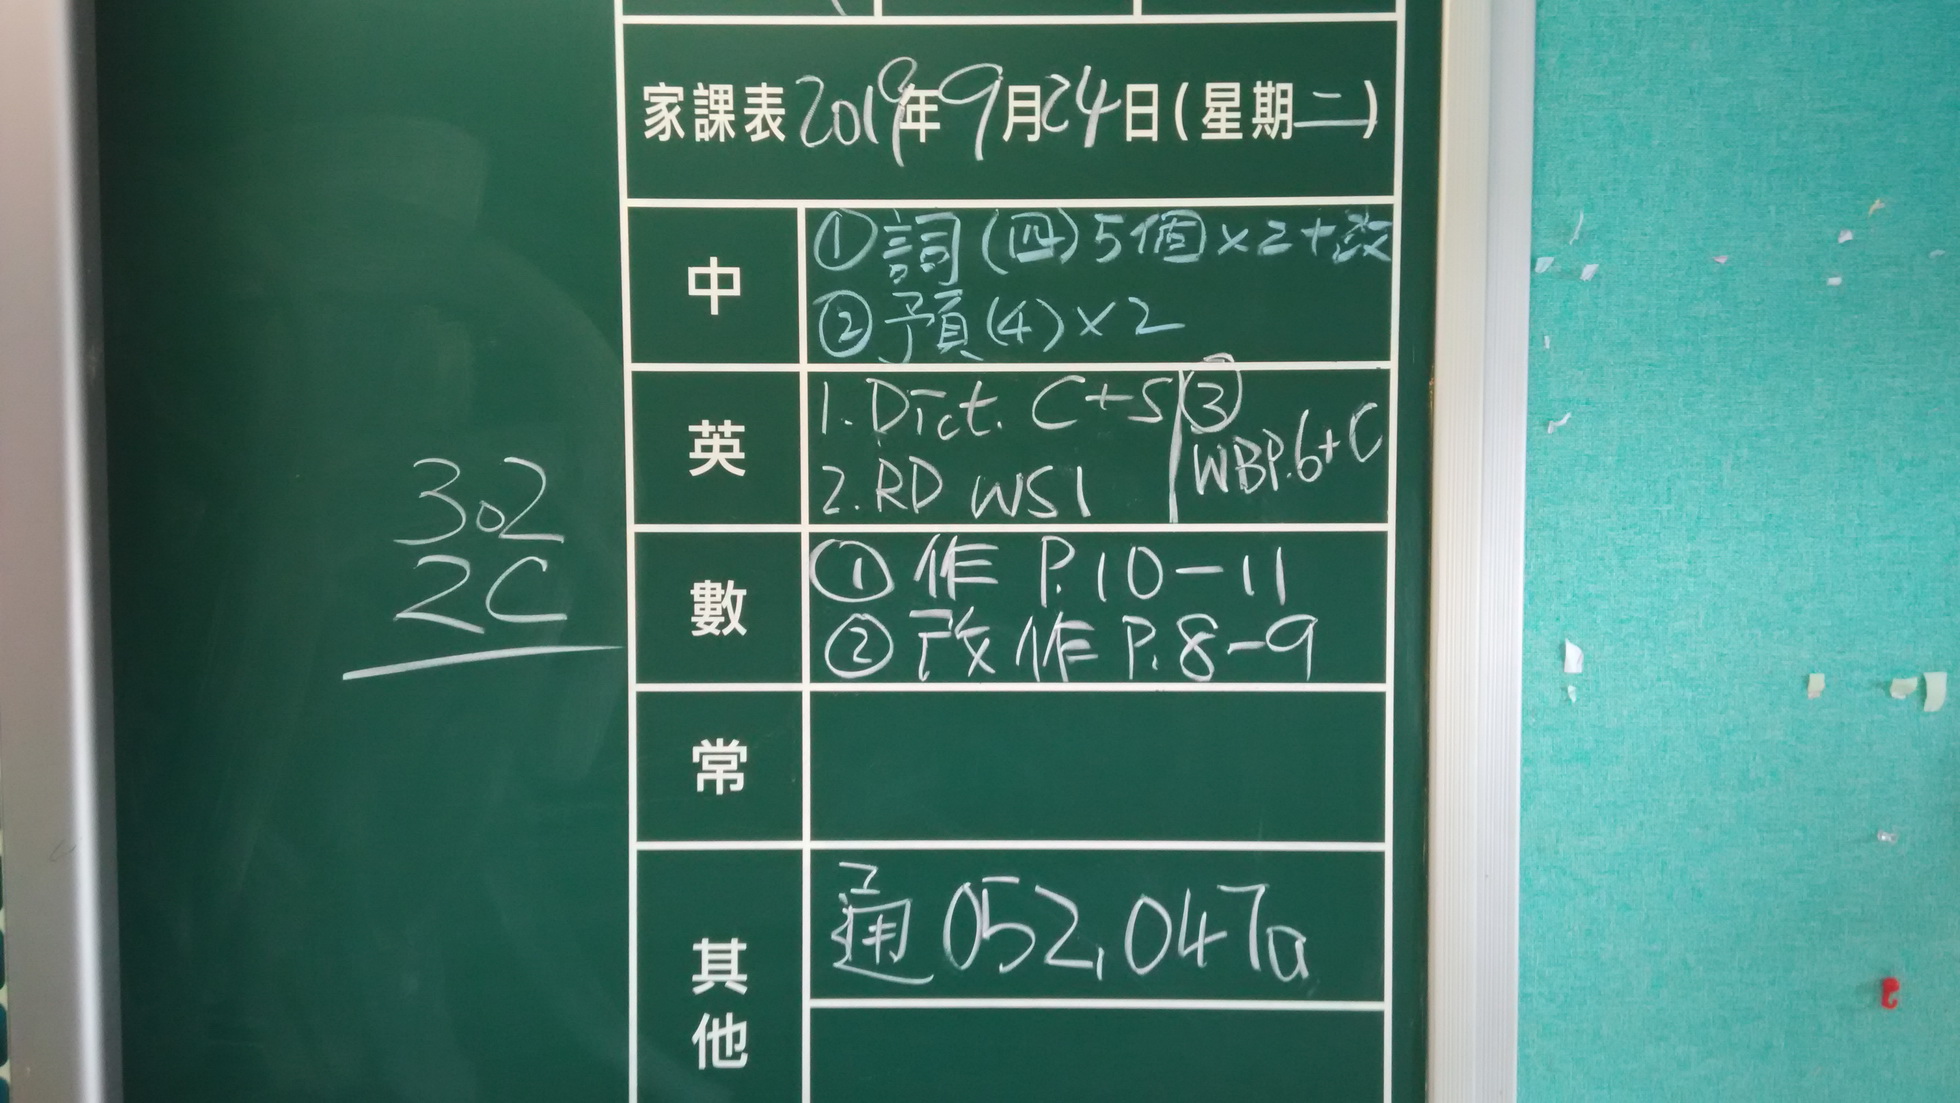 家課表2019年9月24日(星期二)
中
①詞(四)5個×2+改
②預(4)×2
英
1.Dict. C+S
2.RD WS1
③
WBP.6+C
302
2C
數
①作 P.10-11
②改作 P.8-9
常
其他
通052,047a